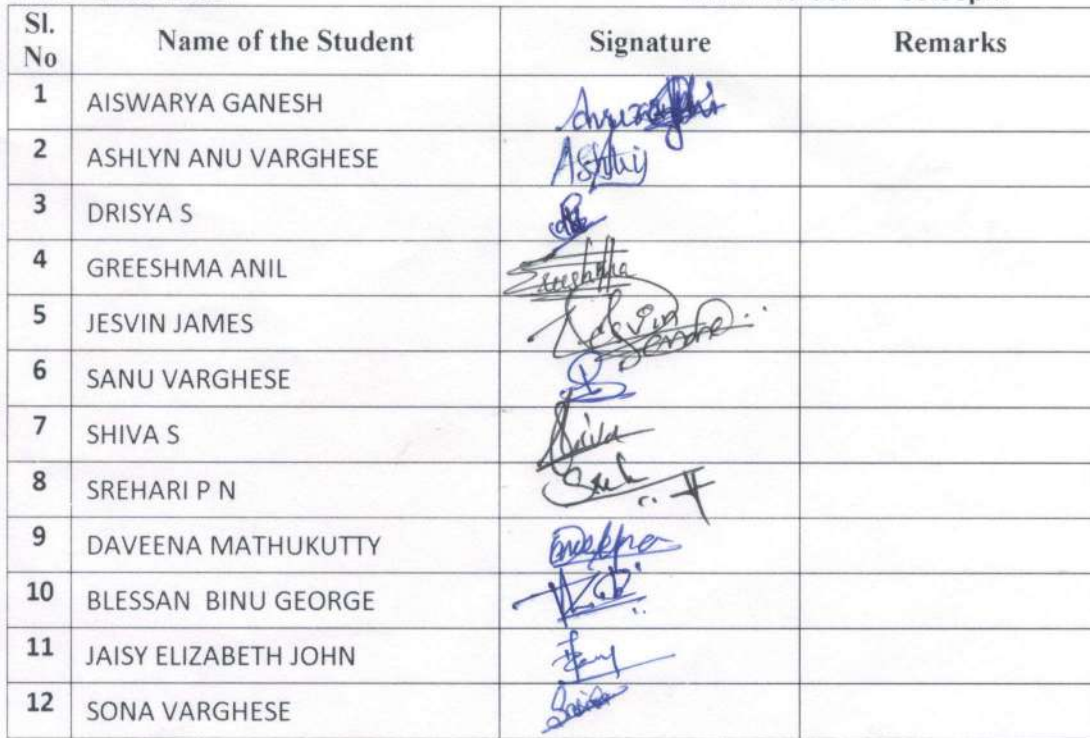 Sl. No Name of the Student Signature Remarks
1 AISWARYA GANESH
2 ASHLYN ANU VARGHESE
3 DRISYA S
4 GREESHMA ANIL Greeshma
5 JESVIN JAMES Jesvin
6 SANU VARGHESE
7 SHIVA S Shiva
8 SREHARI P N
9 DAVEENA MATHUKUTTY
10 BLESSAN BINU GEORGE
11 JAISY ELIZABETH JOHN
12 SONA VARGHESE